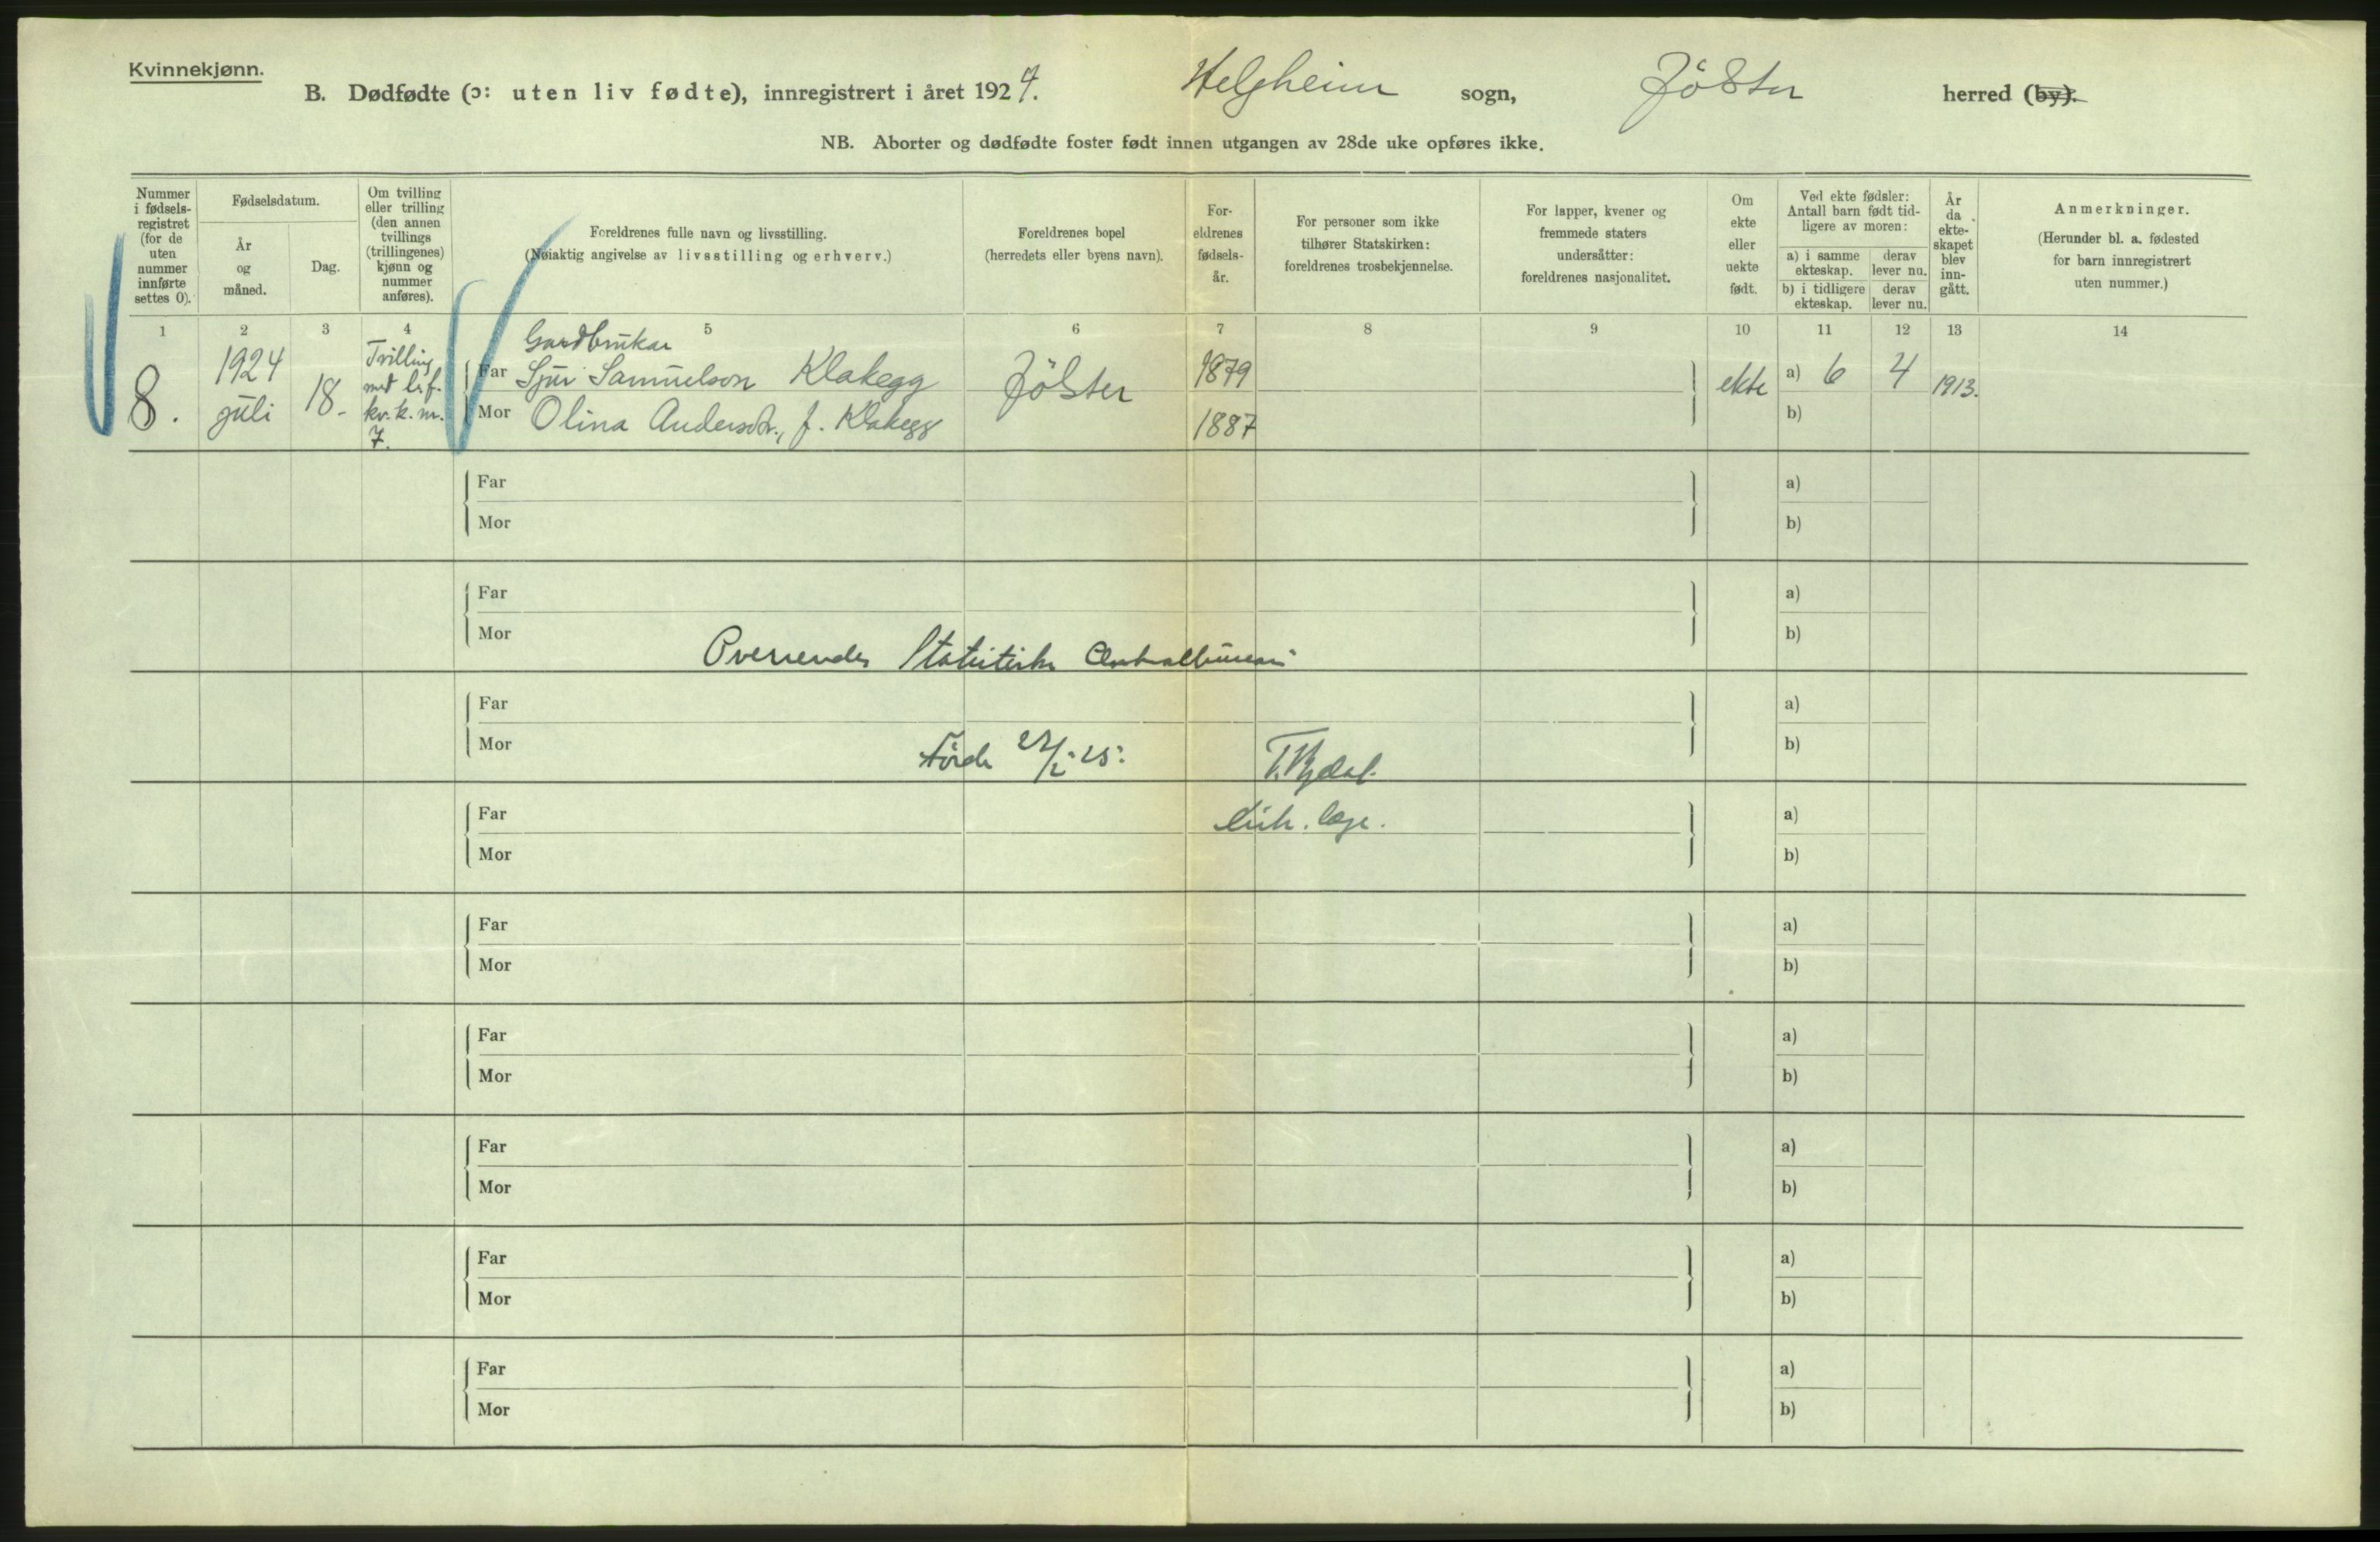 Kvinnekjønn.
B. Dødfødte (ɔ: uten liv fødte), innregistrert i året 1924. Helgheim sogn, Jölster herred (by).
NB. Aborter og dødfødte foster født innen utgangen av 28de uke opføres ikke.
Nummer i fødsels-registret (for de uten nummer innførte settes 0).
Fødselsdatum.
År og måned.
Dag.
Om tvilling eller trilling (den annen tvillings (trillingenes) kjønn og nummer anføres).
Foreldrenes fulle navn og livsstilling.
(Nøiaktig angivelse av livsstilling og erhverv.)
Foreldrenes bopel
(herredets eller byens navn).
For-eldrenes fødsels-år.
For personer som ikke tilhører Statskirken: foreldrenes trosbekjennelse.
For lapper, kvener og fremmede staters undersåtter: foreldrenes nasjonalitet.
Om ekte eller uekte født.
Ved ekte fødsler: Antall barn født tid-ligere av moren:
a) i samme ekteskap.
derav lever nu.
b) i tidligere ekteskap.
derav lever nu.
År da ekte-skapet blev inn-gått.
Anmerkninger.
(Herunder bl. a. fødested for barn innregistrert uten nummer.)
1 2 3 4 5 6 7 8 9 10 11 12 13 14
8. 1924 juli 18. Tvilling med l. f. kv. k. nr. 7.
Gardbrukar
Far Sjur Samuelson Klakegg Jölster 1879 ekte a) 6 4 1913.
Mor Olina Andersdtr., f. Klakegg 1887 b)
Far a)
Mor b)
Far a)
Mor b)
Oversendes Statistiske Centralbureau
Far a)
Mor b)
Förde /2 25.
Far a)
læge.
Mor b)
Far a)
Mor b)
Far a)
Mor b)
Far a)
Mor b)
Far a)
Mor b)
Far a)
Mor b)